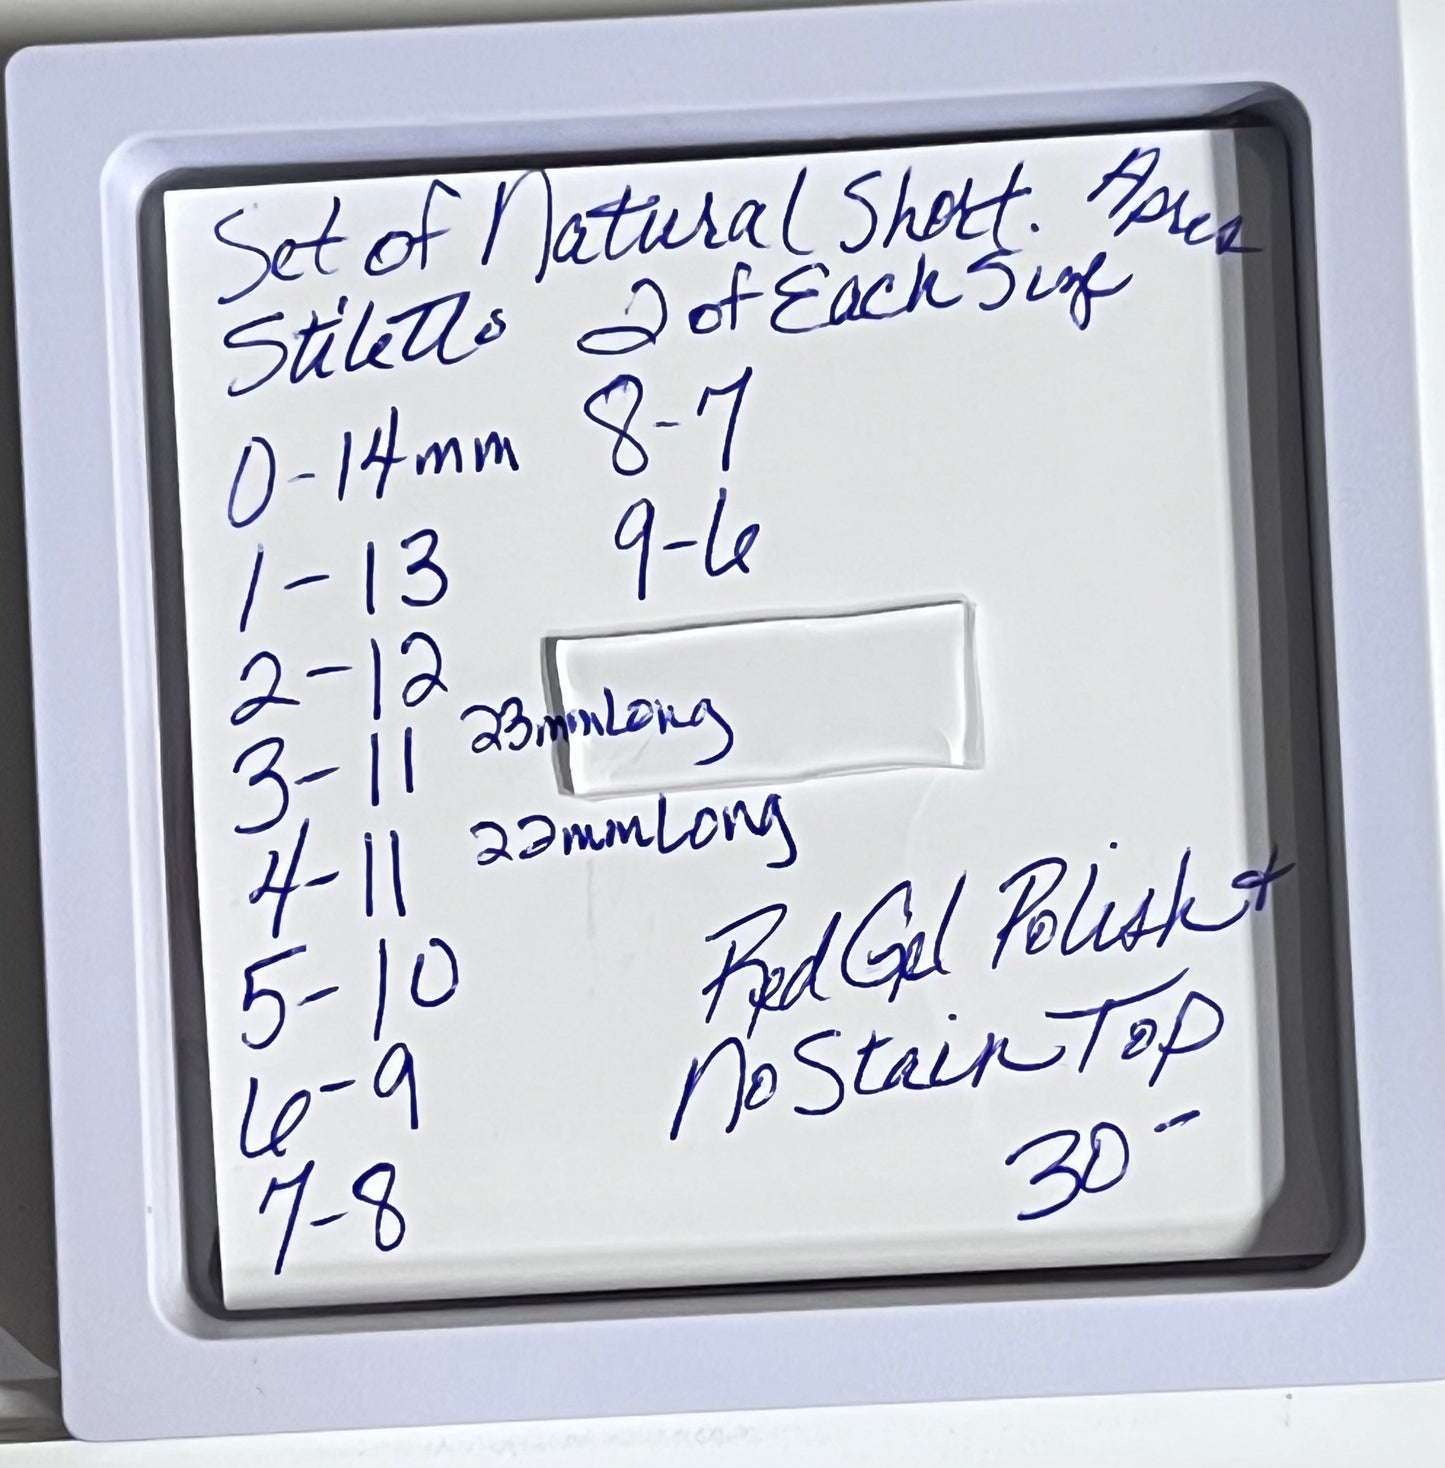 Set of Natural Short. Apres
Stiletto 2 of Each Size
0-14mm
1-13
2-12
3-11 23mmLong
4-11 22mmLong
5-10
6-9
7-8
8-7
9-6
Red Gel Polish +
No Stain Top
30-